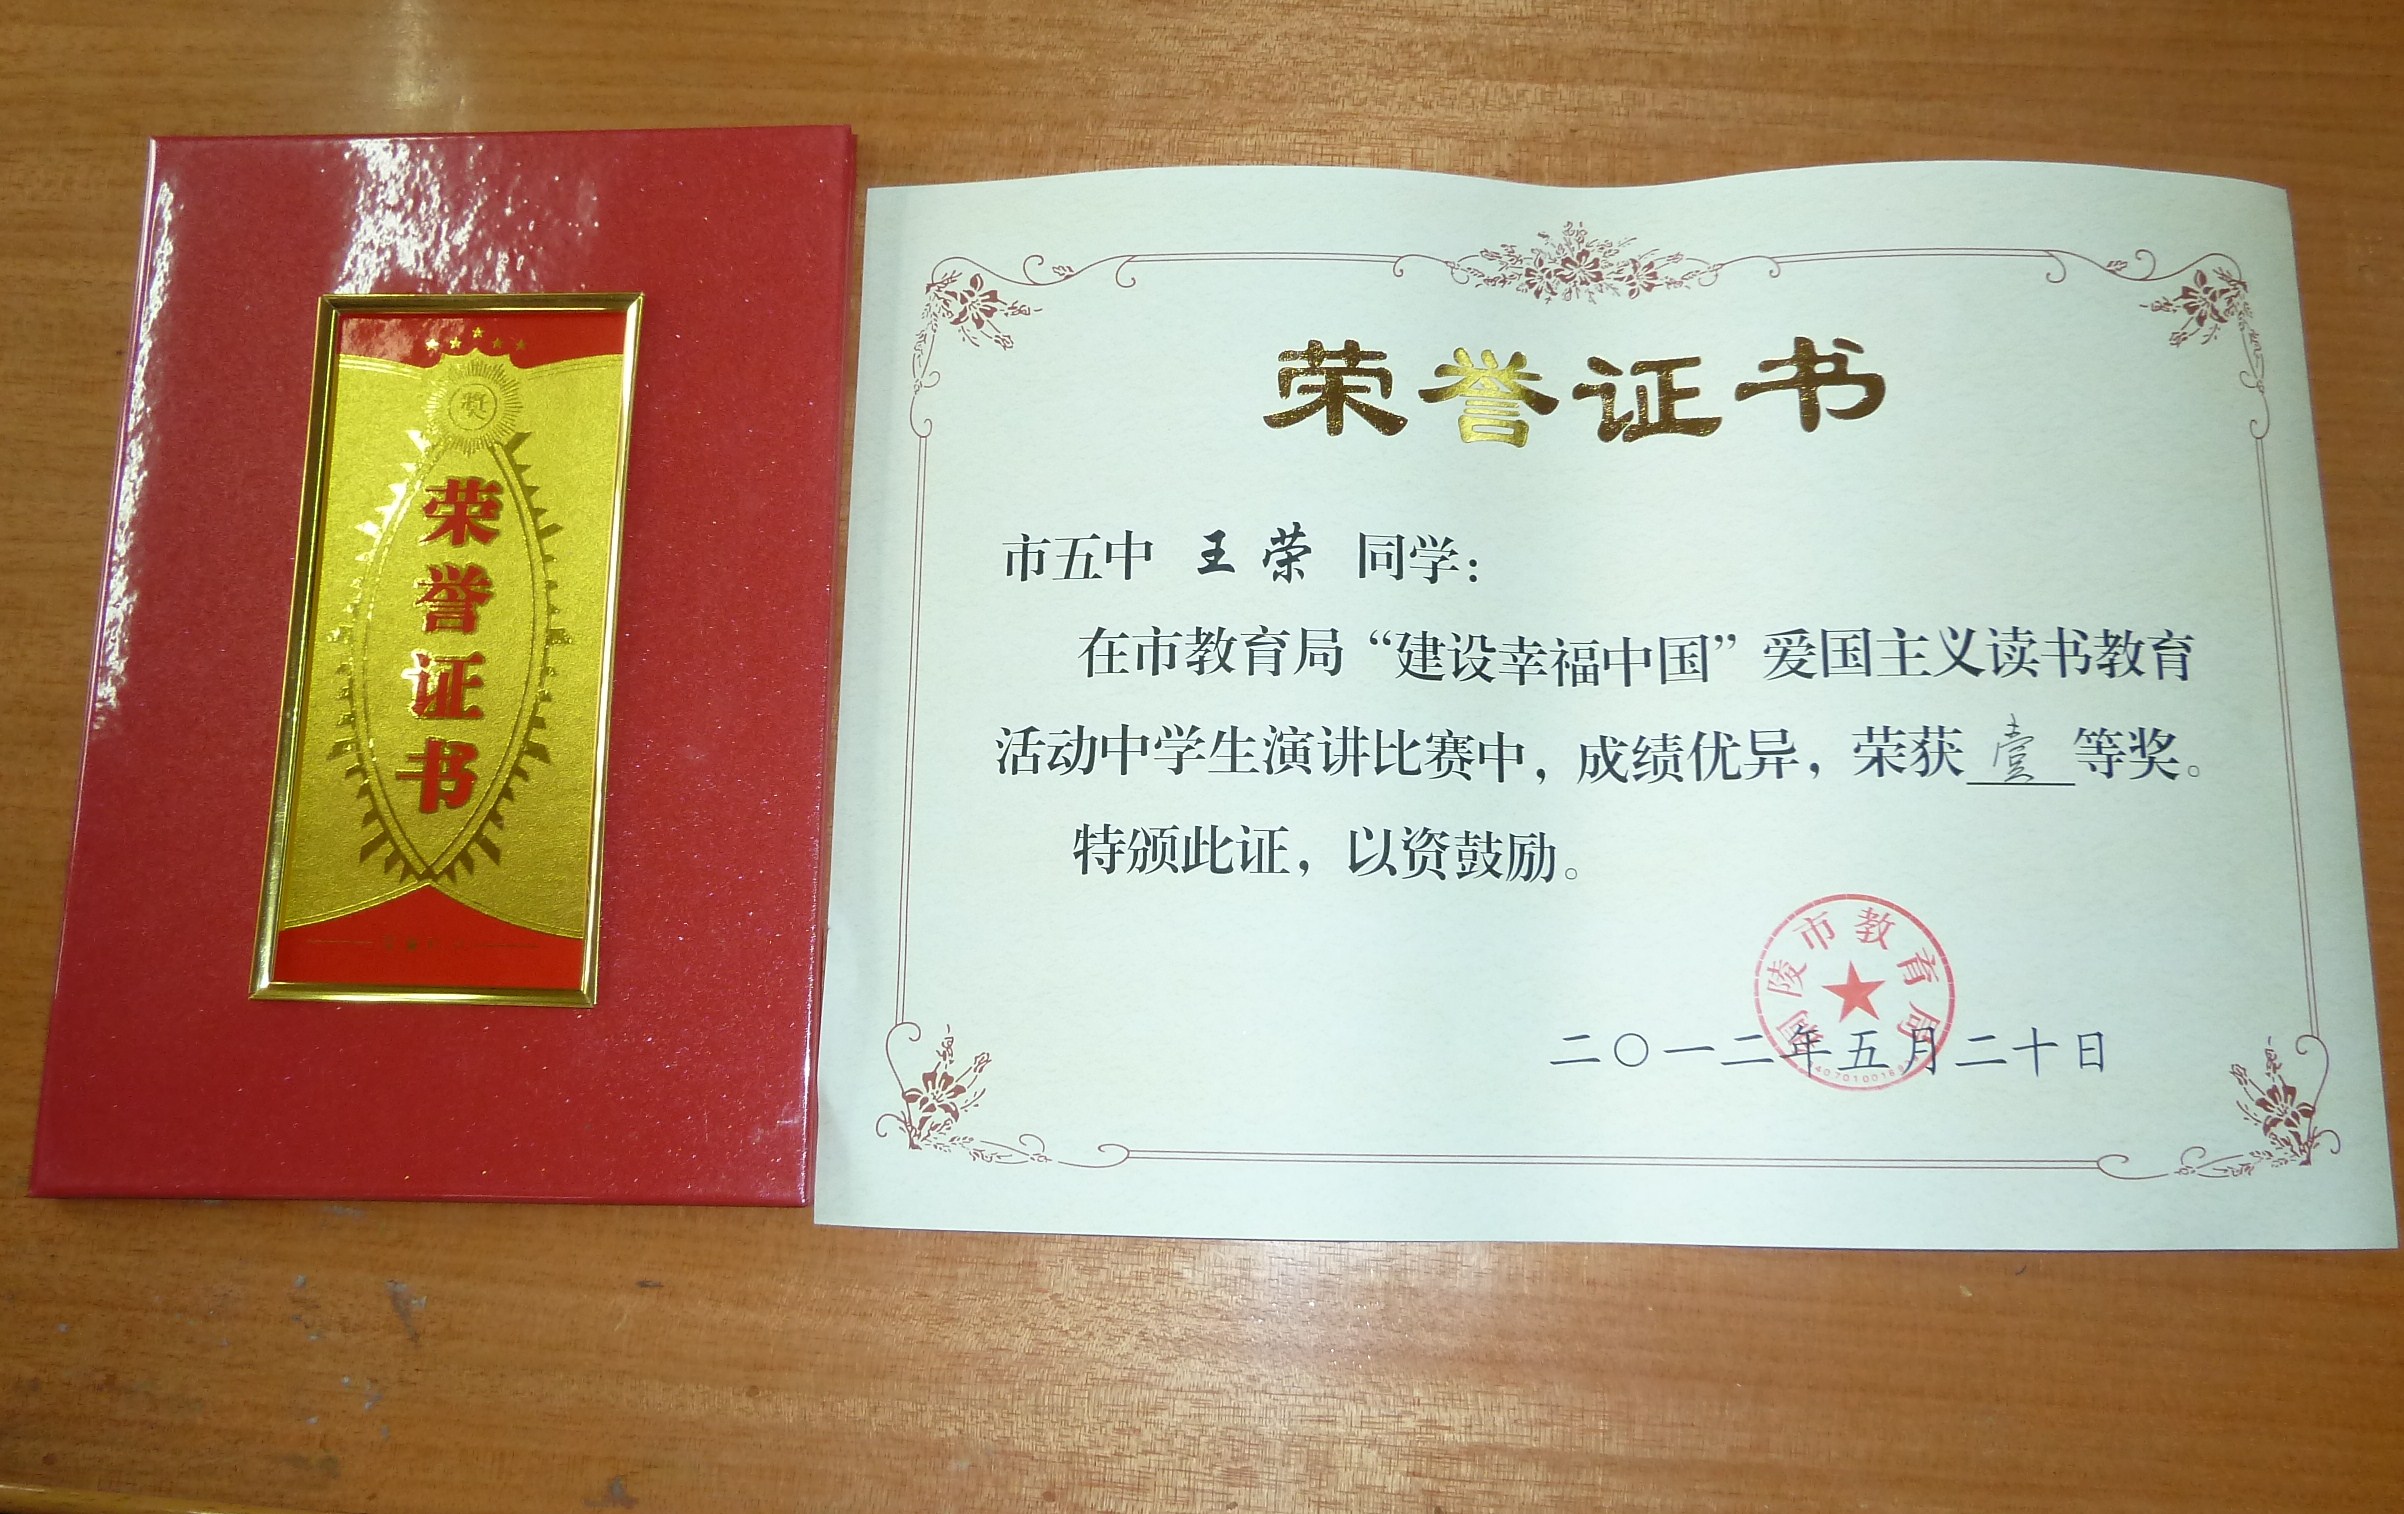 奖
荣誉证书
荣誉证书
市五中 王荣 同学：
在市教育局“建设幸福中国”爱国主义读书教育
活动中学生演讲比赛中，成绩优异，荣获壹等奖。
特颁此证，以资鼓励。
铜陵市教育局
二〇一二年五月二十日